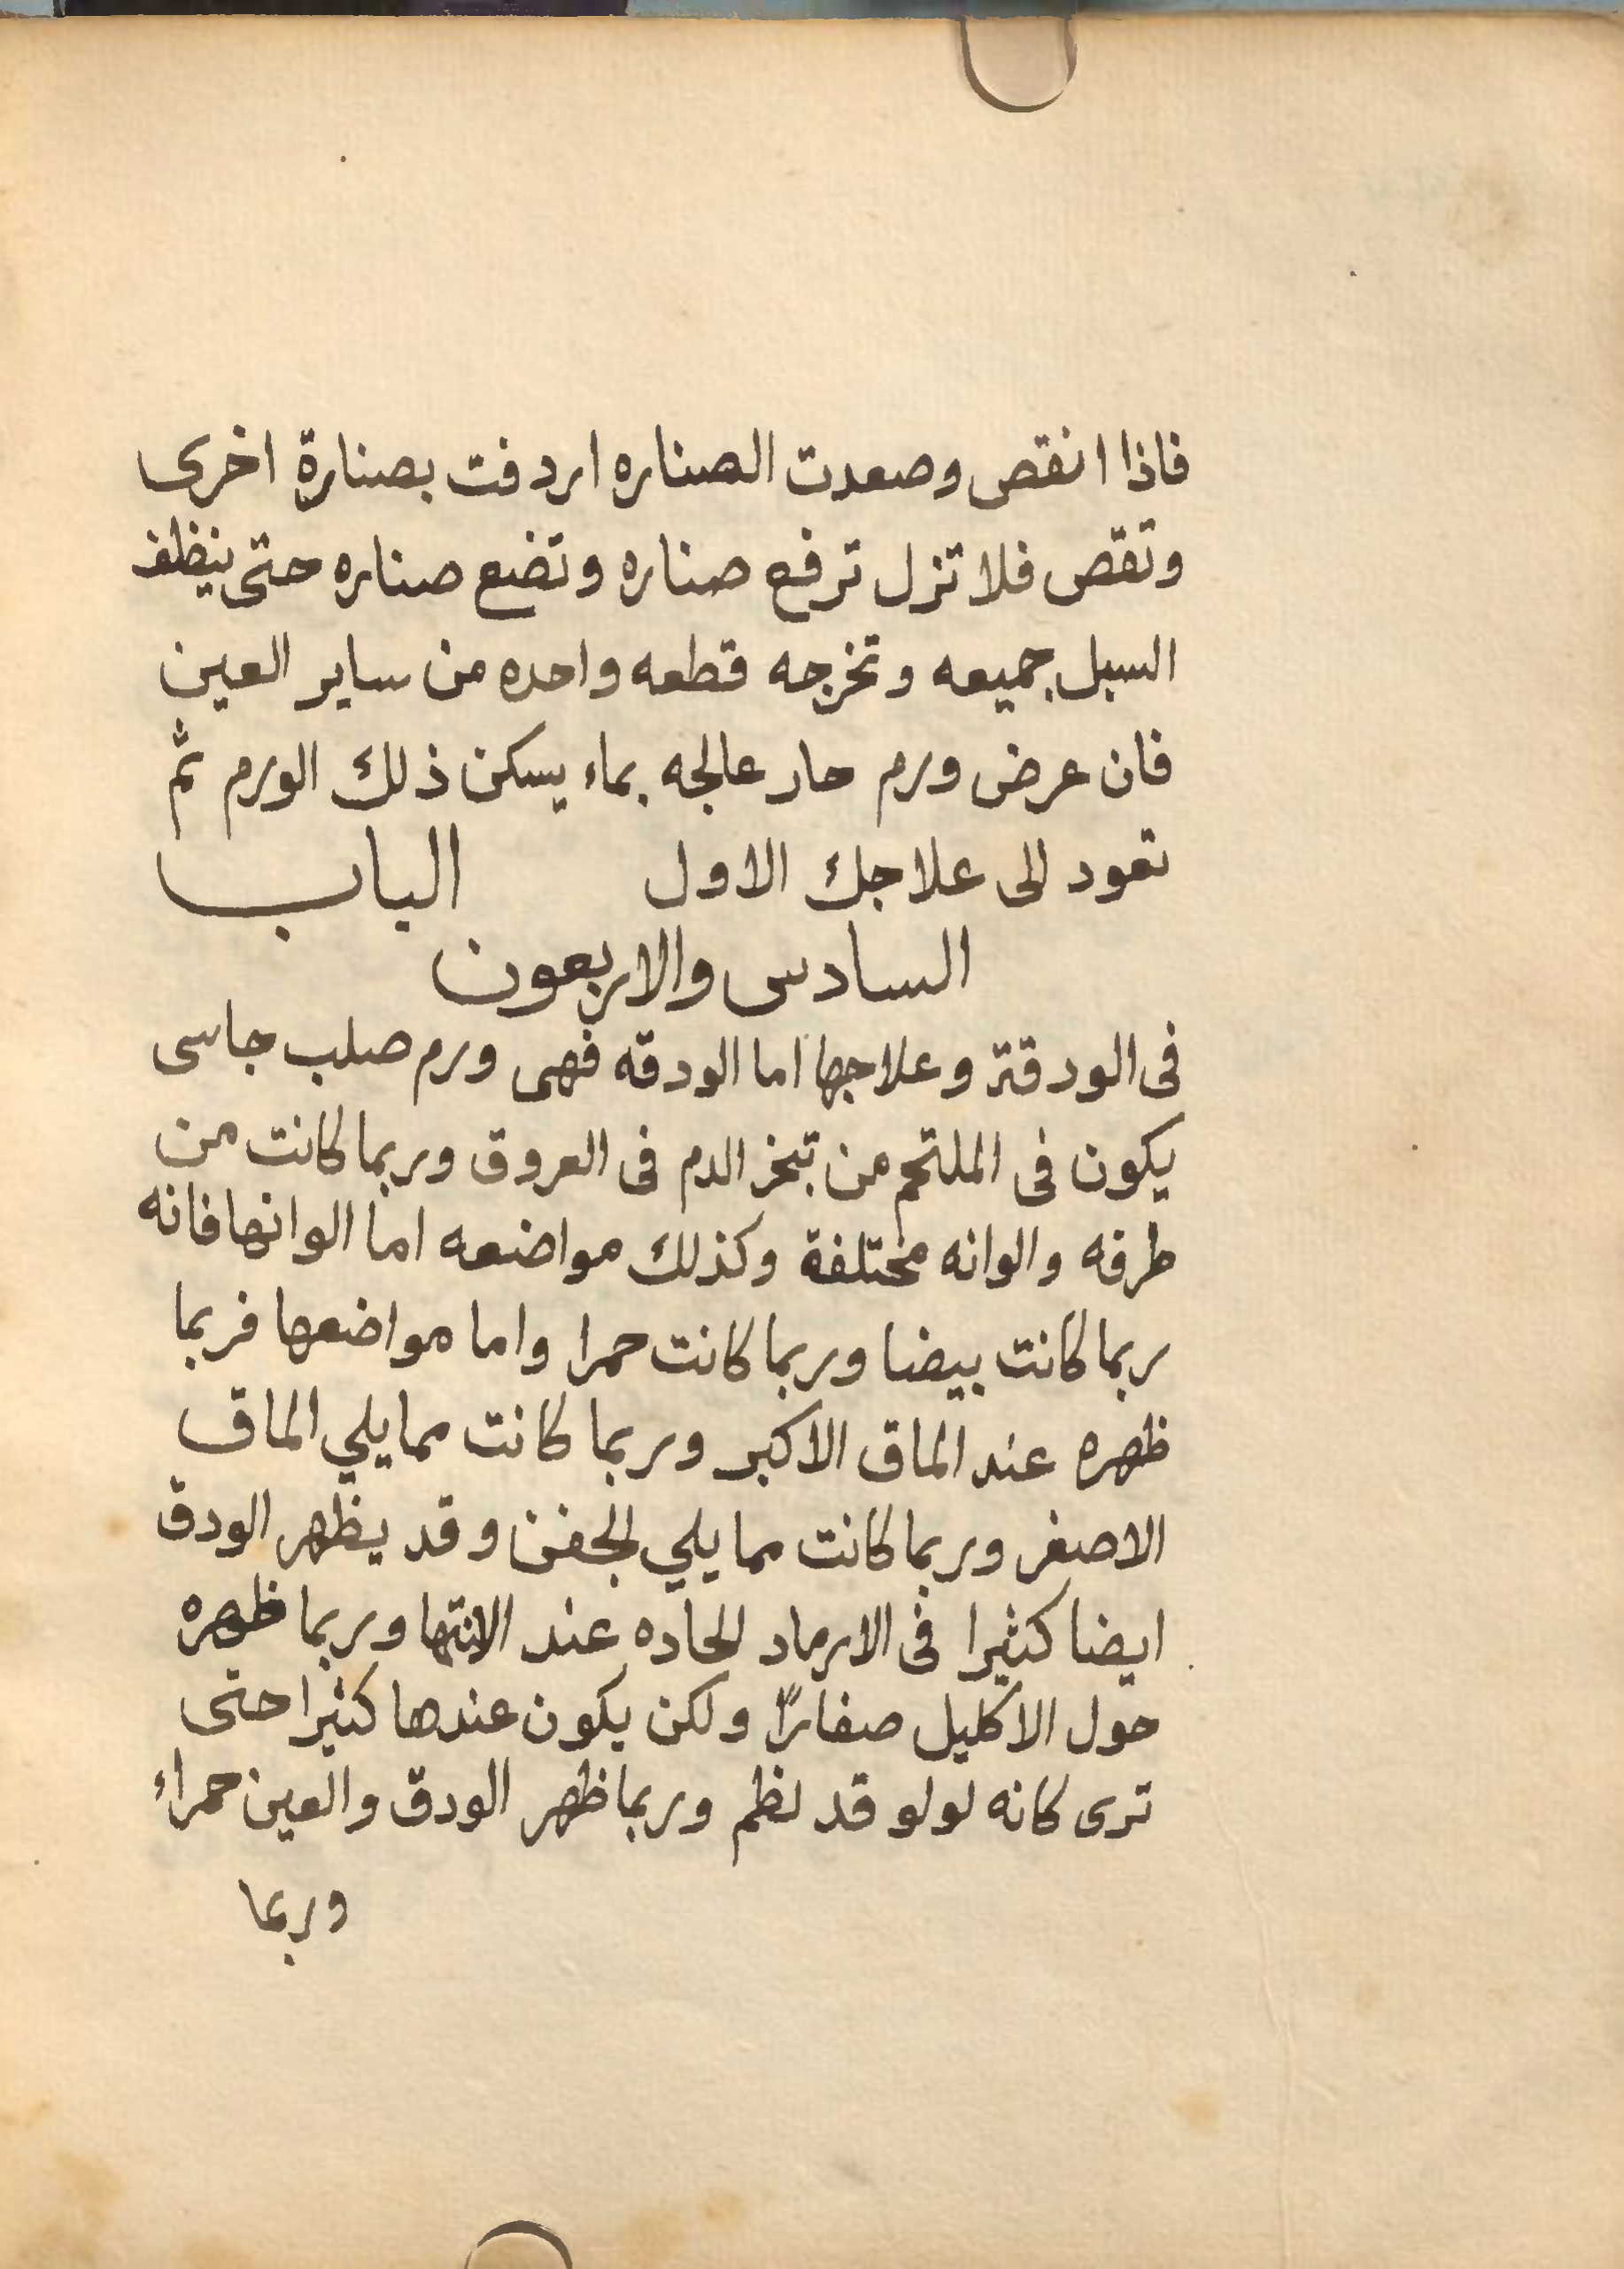 فاذا انقص وصعدت الصناره اردفت بصنارة اخرى
وتقص فلا تزل ترفع صناره وتضع صناره حتى ينظف
السبل جميعه وتخرجه قطعه واحده من ساير العين
فان عرض ورم حار عالجه بماء يسكن ذلك الورم ثم
تعود الى علاجك الاول الباب
السادس والاربعون
فى الودقة وعلاجها اما الودقه فهى ورم صلب جاسى
يكون فى الملتحم من تبخر الدم فى العروق وربما كانت من
طرفه والوانه مختلفة وكذلك مواضعه اما الوانها فانه
ربما كانت بيضا وربما كانت حمرا واما مواضعها فربما
ظهره عند الماق الاكبر وربما كانت مما يلي الماق
الاصغر وربما كانت مما يلي الجفن وقد يظهر الودق
ايضا كثيرا فى الارماد الحاده عند الانتها وربما ظهره
حول الاكليل صغارًا ولكن يكون عندها كثيرا حتى
ترى كانه لولو قد نظم وربما ظهر الودق والعين حمراء
وربما